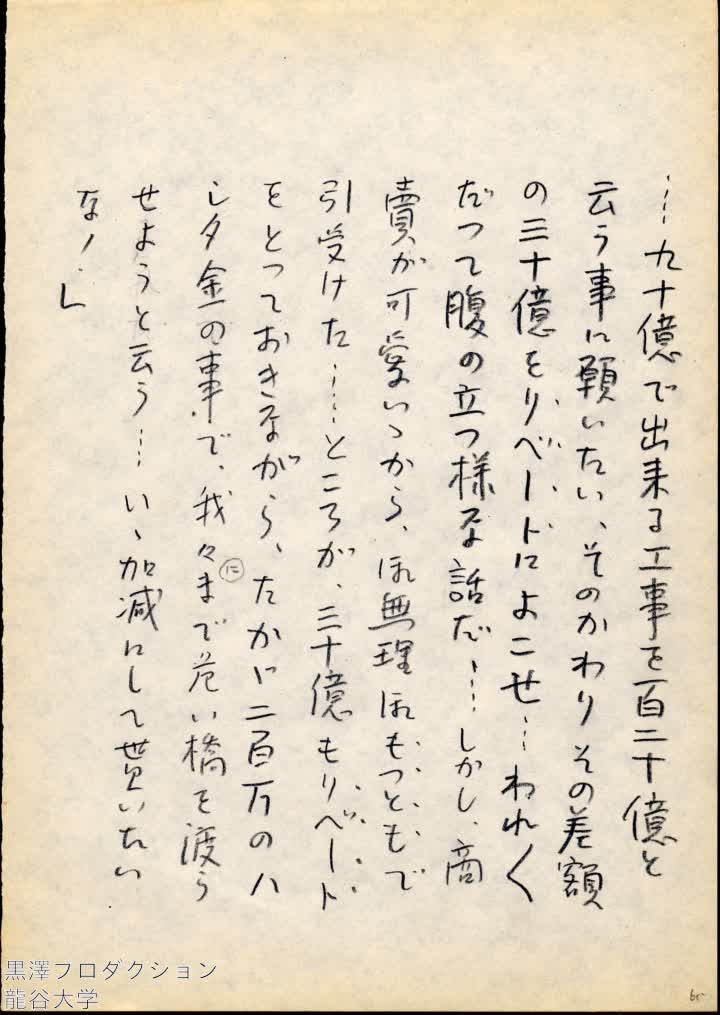 …九十億で出来る工事を百二十億と
云う事に願いたい、そのかわりその差額
の三十億をリベートによこせ…われ〱
だつて腹の立つ様な話だ、…しかし、商
賣が可愛いゝから、御無理御もつともで
引受けた……ところが、三十億もリベート
をとつておきながら、たかゞ二百万のハ
シタ金の事で、我々にまで危い橋を渡ら
せようと云う…いゝ加減にして貰いたい
な！」
黒澤プロダクション
龍谷大学